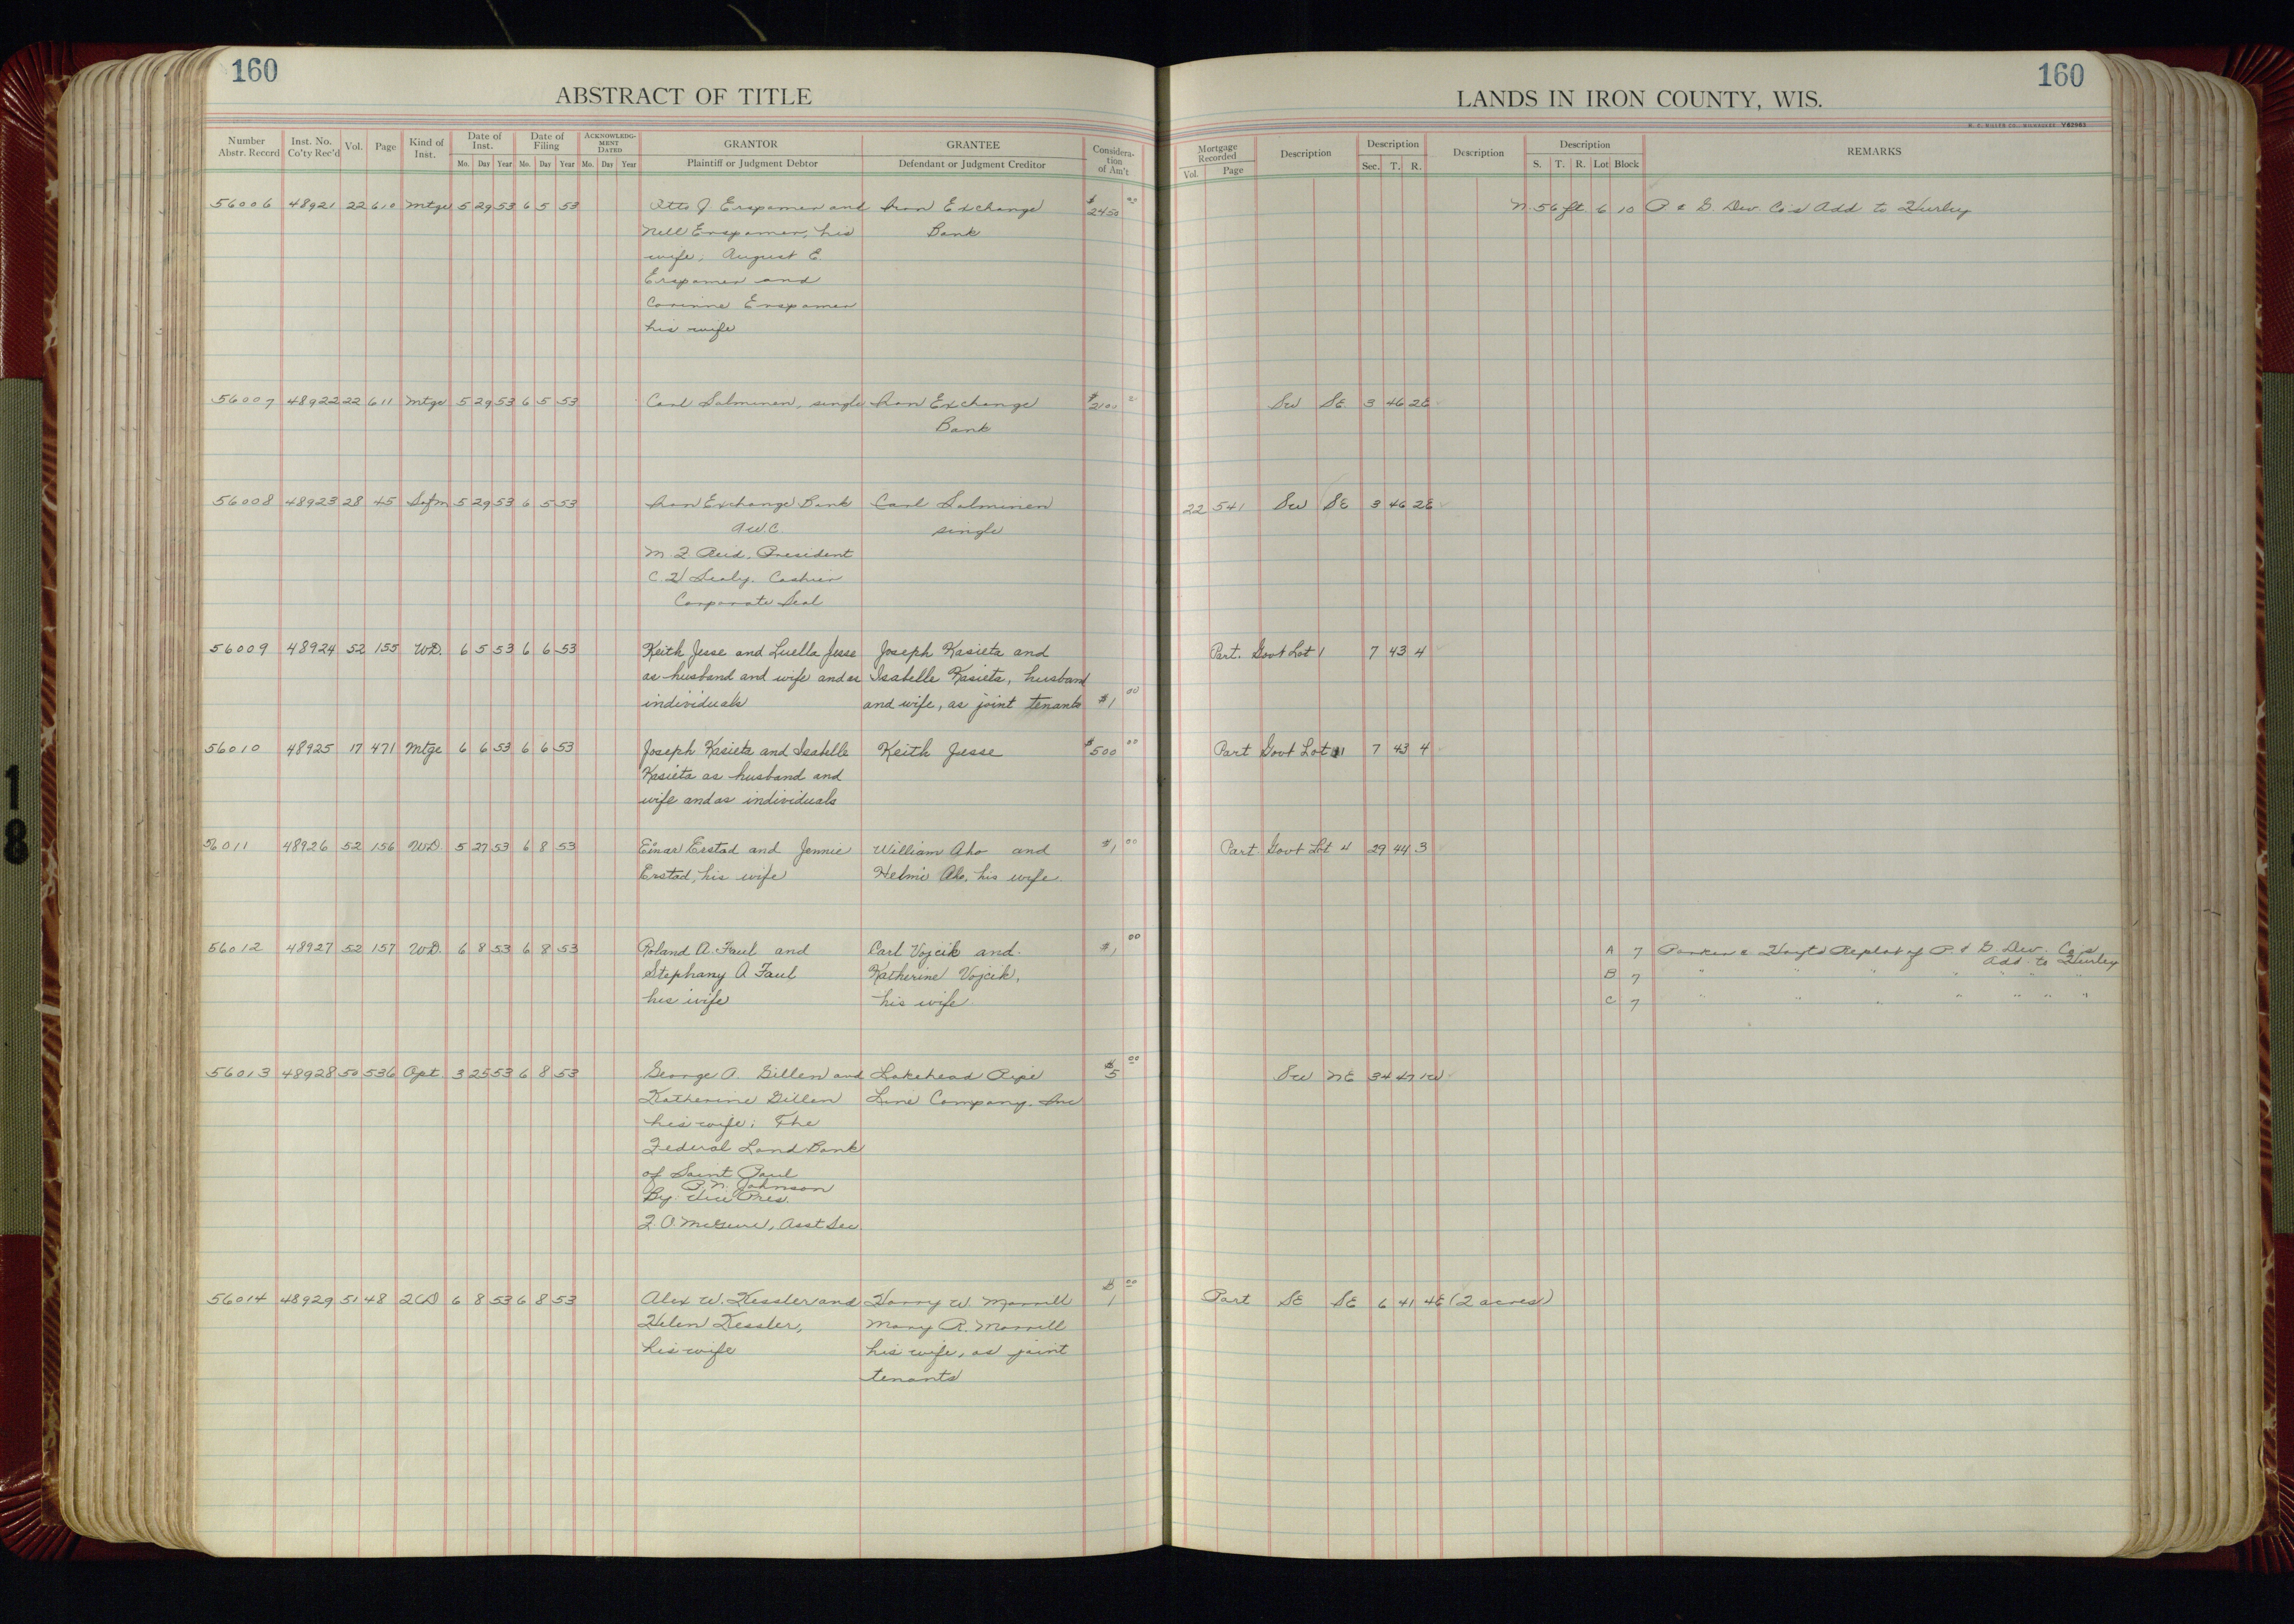 160
ABSTRACT OF TITLE
Number Abstr. Record Inst. No. Co'ty Rec'd Vol. Page Kind of Inst. Date of Inst. Mo. Day Year Date of Filing Mo. Day Year ACKNOWLEDGMENT DATED Mo. Day Year GRANTOR Plaintiff or Judgment Debtor GRANTEE Defendant or Judgment Creditor Consideration of Am't
160
LANDS IN IRON COUNTY, WIS.
H. C. MILLER CO., MILWAUKEE V62963
Mortgage Recorded Vol. Page Description Description Sec. T. R. Description Description S. T. R. Lot Block REMARKS
56006 48921 22 610 Mtge 5 29 53 6 5 53 Otto J Erspamer and Iron Exchange $2450 00 N. 56 ft. 6 10 P & G. Dev. Co's Add to Hurley
Nell Erspamer, his Bank
wife; August E.
Erspamer and
Corinne Erspamer
his wife
56007 48922 22 611 Mtge 5 29 53 6 5 53 Carl Salminen, single Iron Exchange $2100 SW SE 3 46 2E
Bank
56008 48923 28 45 Safm 5 29 53 6 5 53 Iron Exchange Bank Carl Salminen 22 541 SW SE 3 46 2E
AWC single
M. J. Reid, President
Cashier
Corporate Seal
56009 48924 52 155 WD. 6 5 53 6 6 53 Keith Jesse and Luella Jesse Joseph Kasieta and Part. Govt Lot 1 7 43 4
as husband and wife and as Isabelle Kasieta, husband
individuals and wife, as joint tenants $1 00
56010 48925 17 471 Mtge 6 6 53 6 6 53 Joseph Kasieta and Isabelle Keith Jesse $500 00 Part Govt Lot 1 7 43 4
Kasieta as husband and
wife and as individuals
56011 48926 52 156 WD. 5 27 53 6 8 53 Einar Erstad and Jennie William Aho and $1 00 Part Govt Lot 4 29 44 3
Erstad, his wife Helmi Aho, his wife.
56012 48927 52 157 WD. 6 8 53 6 8 53 Roland A. Faul and Carl Vojcik and $1 00 A 7 Parker & Hoyts Replat of P. & G. Dev. Co's
Add to Hurley
Stephany A Faul Katherine Vojcik, B 7 " " " " " " "
his wife his wife C 7 " " " " " " "
56013 48928 50 536 Apt. 3 25 53 6 8 53 George A. Gillen and Lakehead Pipe $5 00 SW NE 34 47 1W
Katherine Gillen Line Company, Inc
his wife; The
Federal Land Bank
of Saint Paul
P. N. Johnson
By: Vice Pres.
McGuire, Asst Sec.
56014 48929 51 48 QCD 6 8 53 6 8 53 Alex W. Kessler and Harry W. Morrill $1 00 Part SE SE 6 41 4E (2 acres)
Helen Kessler, Mary R. Morrill
his wife his wife, as joint
tenants
18